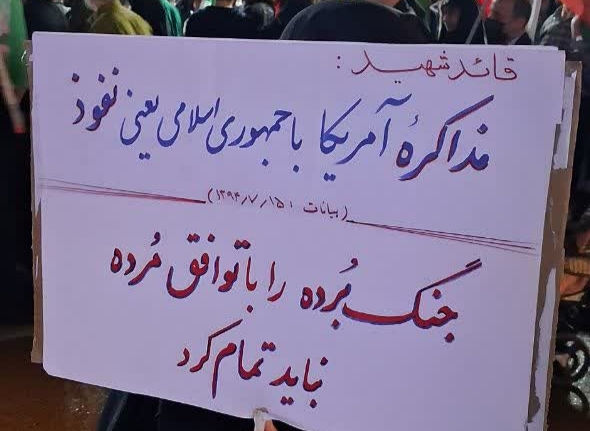 قائد شهید :
مذاکرهٔ آمریکا با جمهوری اسلامی یعنی نفوذ
(بیانات ۱۳۹۴/۷/۱۵)
جنگ بُرده را با توافق مُرده
نباید تمام کرد